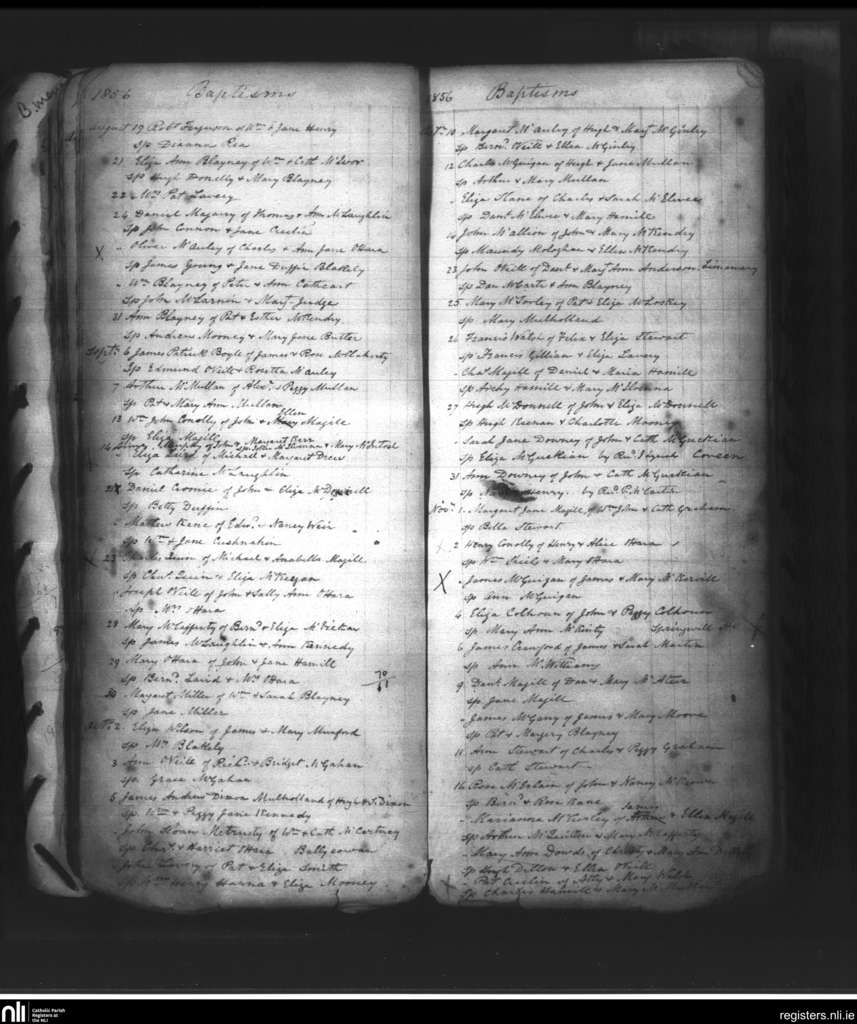 1856 Baptisms
August 19 Robt Ferguson of Wm & Jane Henry
Sp Dianna Rea
21 Eliza Ann Blayney of Wm & Cath McIvor
Sp Hugh Donelly & Mary Blayney
22 Mrs Pat Lavery
24 Daniel Magarry of Thomas & Ann McLaughlin
Sp John Connor & Jane
X " Oliver McAuley of Charles & Ann Jane OHara
Sp James Young & Jane Duffin Blakely
" Wm Blayney of Peter & Ann Cathcart
Sp John McLarnin & Margt Judge
31 Ann Blayney of Pat & Esther McKendry
Sp Andrew Mooney & Mary Jane Butler
Septr 6 James Patrick Boyle of James & Rose McFlaherty
Sp Edmund ONeill & Rosetta McAuley
7 Arthur McMullan of Alexr & Peggy Mullan
Sp Pat & Mary Ann Mullan
13 Wm John Conolly of John & Ellen Magill
Sp Eliza Magill
14 Henry Murphy of John & Margaret Kerr
Sp John & Mary McIntosh
" Eliza of Michael & Margaret Drew
Sp Catherine McLaughlin
Daniel Coomie of John & Eliza McDonnell
Sp Betty Duffin
" Mathew Kane of Edwd & Nancy Weir
Sp Wm & Jane Cushnahan
23 Charles Quin of Michael & Anabella Magill
Sp Chas Quin & Eliza McKeegan
" Joseph ONeill of John & Sally Ann OHara
Sp Mrs OHara
28 Mary McCafferty of Bernd & Eliza McVicker
Sp James McLaughlin & Ann Kennedy
29 Mary OHara of John & Jane Hamill
Sp Bernd Laird & Mrs OHara
30 Margaret Miller of Wm & Sarah Blayney
Sp Jane Miller
Octr 2 Eliza Wilson of James & Mary Munford
Sp Mrs Blakely
3 Ann ONeill of Richd & Bridget McGahan
Sp Grace McGahan
5 James Andrew Dixon Mulholland of Hugh & Dixon
Sp Wm & Peggy Jane Kennedy
" John Sloan of Wm & Cath McCartney
Sp Edwd & Harriet OHara Ballycowan
John Lavery of Pat & Eliza Smith
Sp Wm Henry Hanna & Eliza Mooney
1856 Baptisms
Octr 10 Margaret McAuley of Hugh & Margt McGinley
Sp Bernd ONeill & Ellen McGinley
12 Charles McGuigan of Hugh & Jane Mullan
Sp Arthur & Mary Mullan
" Eliza Kane of Charles & Sarah McElwee
Sp Danl McElwee & Mary Hamill
14 John McAllion of John & Mary McKendry
Sp Maurdy Mologhan & Ellen McKendry
23 John ONeill of Danl & Margt Ann Anderson Limavary
Sp Dan McCarte & Ann Blayney
25 Mary McSorley of Pat & Eliza McLoskey
Sp Mary Mulholland
26 Francis Walsh of Felix & Eliza Stewart
Sp Francis Gillian & Eliza Lavery
" Chas Magill of Daniel & Maria Hamill
Sp Archy Hamill & Mary
27 Hugh McDonnell of John & Eliza McDonnell
Sp Hugh Keenan & Charlotte Mooney
" Sarah Jane Downey of John & Cath McGuckian
Sp Eliza McGuckian by Revd J Lynch Coreen
31 Ann Downey of John & Cath McGuckian
Sp Henry. by Revd P. McCartan
Novr 1. Margaret Jane Magill of Wm John & Cath Graham
Sp Bella Stewart
2 Henry Conolly of Henry & Alice OHara
Sp Wm Sheil & Mary OHara
X " James McGuigan of James & Mary McKervill
Sp Ann McGuigan
4 Eliza Colhoun of John & Peggy Colhoun
Sp Mary Ann McKinty Springwell
6 James Crawford of James & Sarah Martin
Sp Ann McWilliams
9 Danl Magill of Dan & Mary McAteer
Sp Jane Magill
" James McGarry of James & Mary Moore
Sp Pat & Margery Blayney
11 Ann Stewart of Charles & Peggy Graham
Sp Cath Stewart
16 Rose of John & Nancy McKeown
Sp Bernd & Rose Kane
" Marianna McKinley of James & Ellen Magill
Sp Arthur McQuillan & Mary McCafferty
" Mary Ann Dowds of Charles & Mary Ann Dillon
Sp Hugh Dillon & Ellen ONeill
" Pat of & Mary Walsh
Sp Charles Hamill & Mary McMullan
nli Catholic Parish
Registers at
the NLI
registers.nli.ie